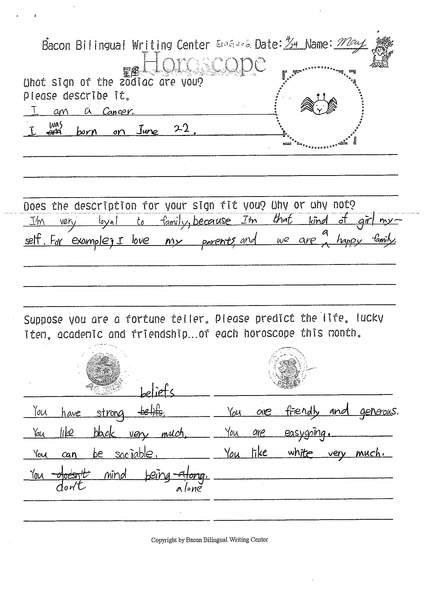 Bacon Bilingual Writing Center Date: 4/24 Name: May
Horoscope
What sign of the zodiac are you?
Please describe it.
I am a Cancer.
I was born on June 22.
Does the description for your sign fit you? Why or why not?
I'm very loyal to family, because I'm that kind of girl my-
self. For example, I love my parents, and we are a happy family.
Suppose you are a fortune teller. Please predict the life, lucky
item, academic and friendship...of each horoscope this month.
beliefs
You have strong belifs.
You like black very much.
You can be sociable.
You doesn't mind being along.
don't alone
You are friendly and generous.
You are easygoing.
You like white very much.
Copyright by Bacon Bilingual Writing Center